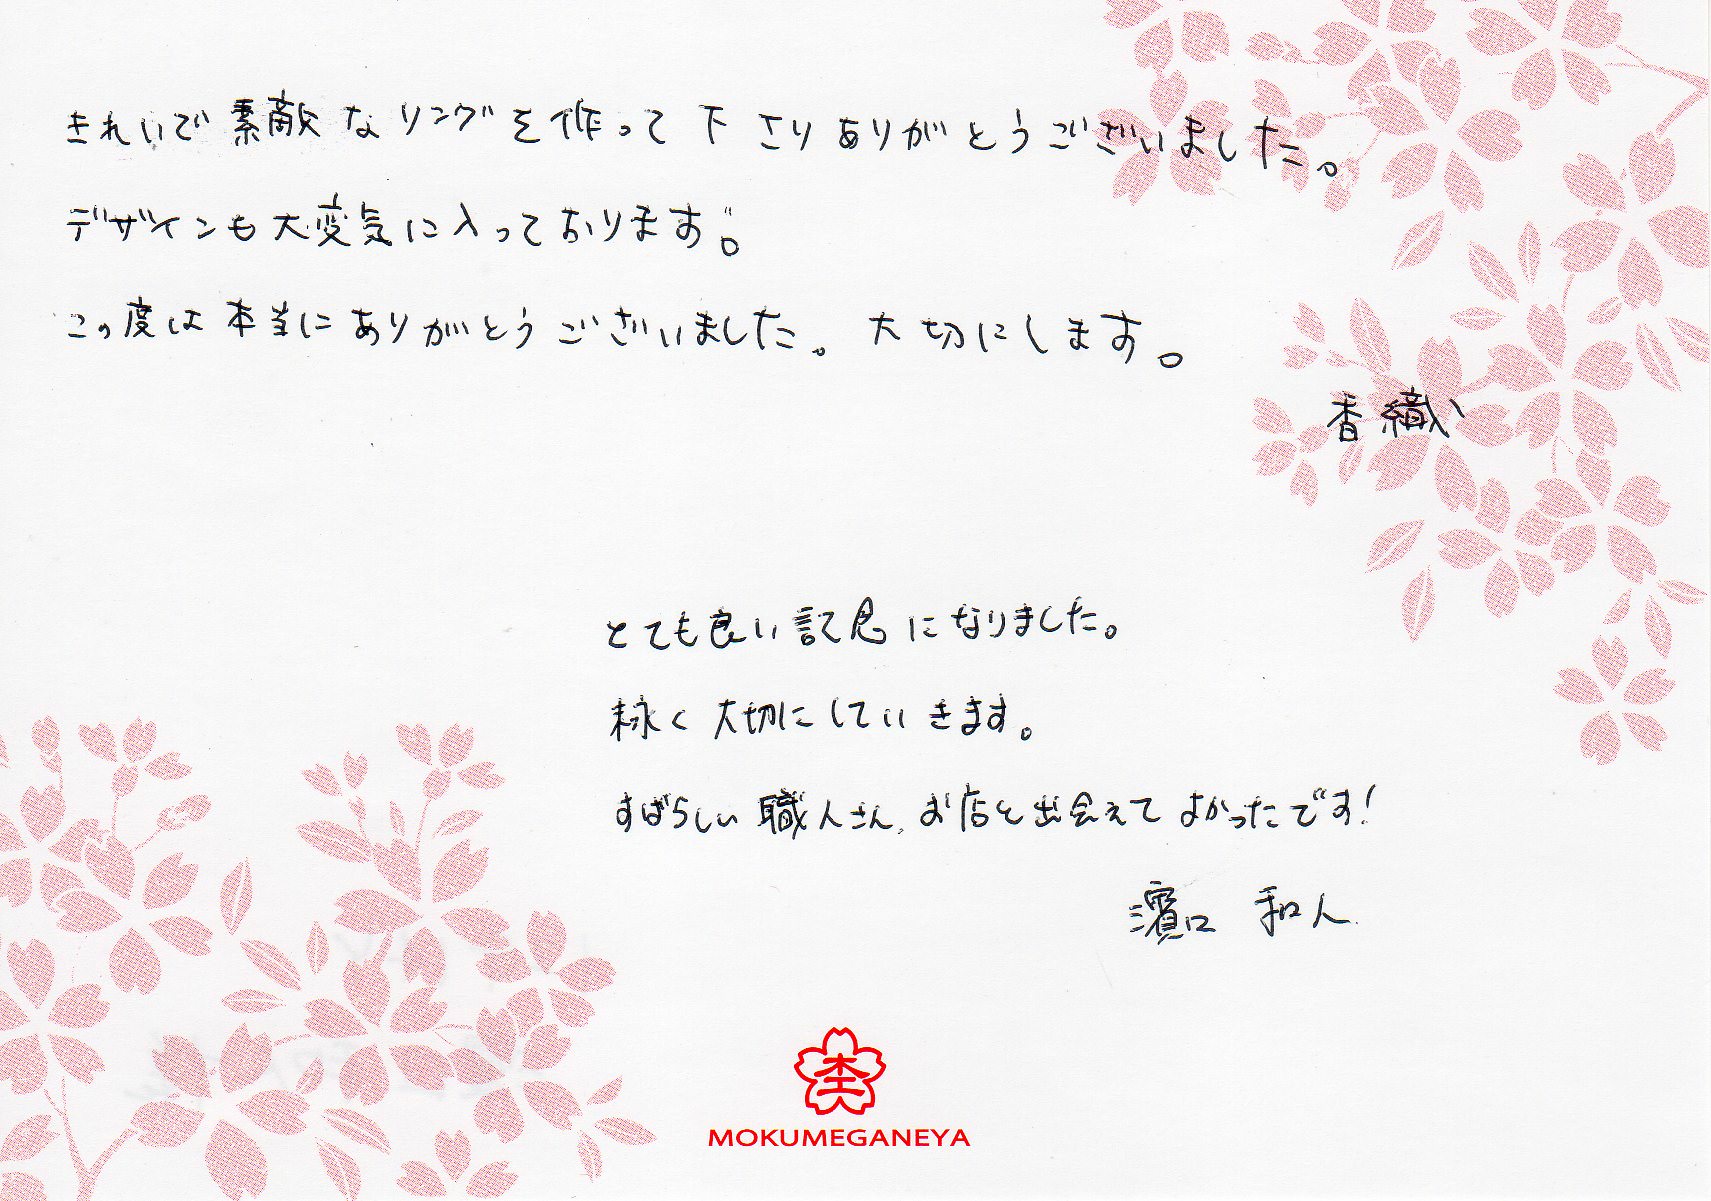 きれいで素敵なリングを作って下さりありがとうございました。
デザインも大変気に入っております。
この度は本当にありがとうございました。大切にします。
香織
とても良い記念になりました。
末永く大切にしていきます。
すばらしい職人さん、お店と出会えてよかったです!
濱口 和人
杢
MOKUMEGANEYA